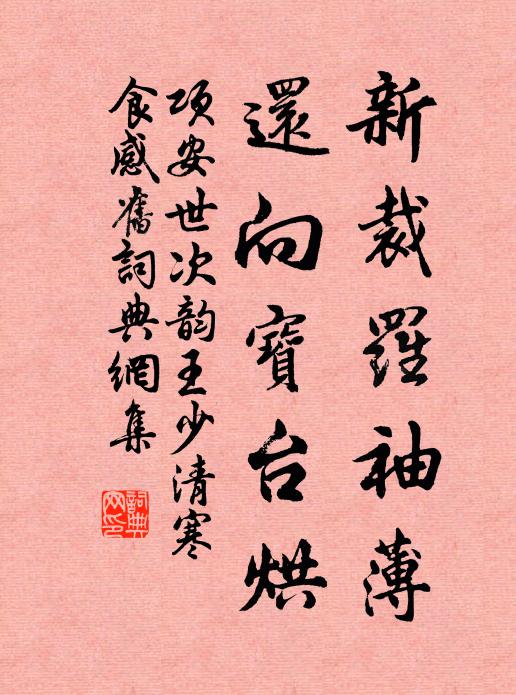 新裁羅袖薄
還向寶台烘
項安世次韵王少清寒
食感舊詞典網集
詞典
网印